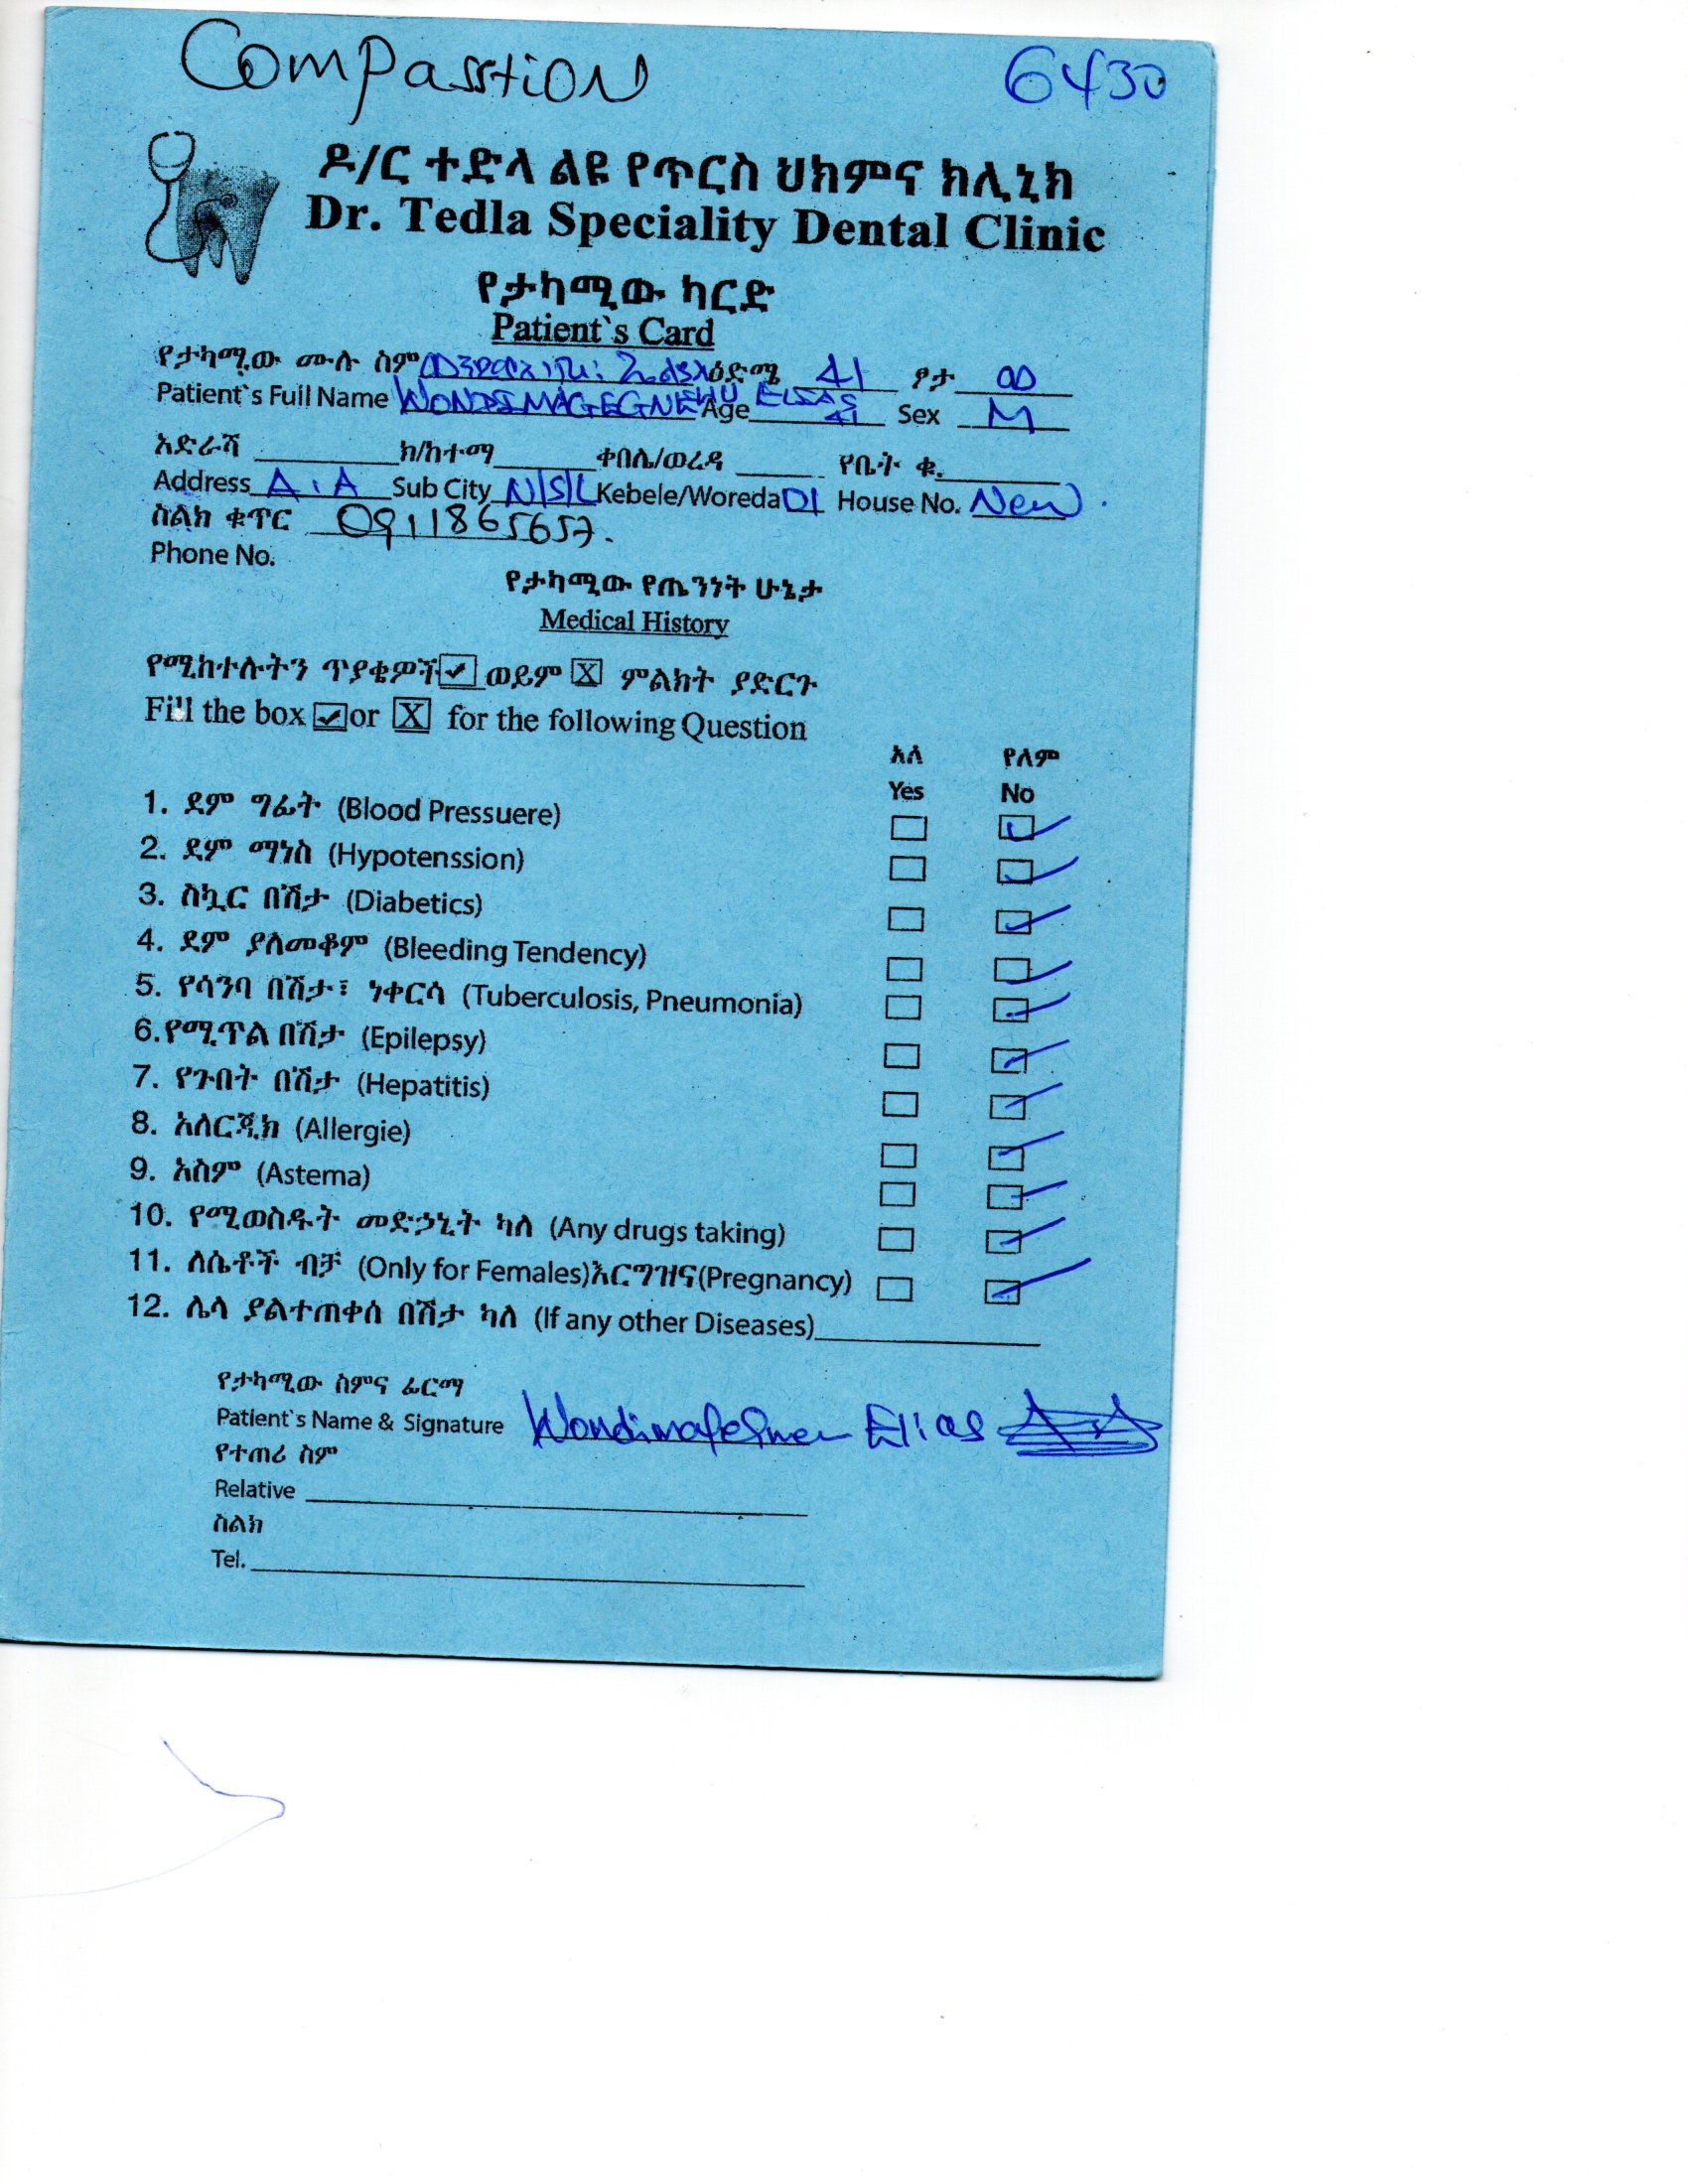 Compasstion 6430
ዶ/ር ተድላ ልዩ የጥርስ ህክምና ክሊኒክ
Dr. Tedla Speciality Dental Clinic
የታካሚው ካርድ
Patient`s Card
የታካሚው ሙሉ ስም ዕድሜ 41 ፆታ ወ
Patient`s Full Name WONDIMAGEGNEHU ELIAS Age 41 Sex M
አድራሻ ክ/ከተማ ቀበሌ/ወረዳ የቤት ቁ.
Address A.A Sub City N/S/L Kebele/Woreda 01 House No. New
ስልክ ቁጥር 0911865657.
Phone No.
የታካሚው የጤንነት ሁኔታ
Medical History
የሚከተሉትን ጥያቄዎች ✓ ወይም X ምልክት ያድርጉ
Fill the box ✓ or X for the following Question
አለ የለም
Yes No
1. ደም ግፊት (Blood Pressuere) ✓
2. ደም ማነስ (Hypotenssion) ✓
3. ስኳር በሽታ (Diabetics) ✓
4. ደም ያለመቆም (Bleeding Tendency) ✓
5. የሳንባ በሽታ፣ ነቀርሳ (Tuberculosis, Pneumonia) ✓
6.የሚጥል በሽታ (Epilepsy) ✓
7. የጉበት በሽታ (Hepatitis) ✓
8. አለርጂክ (Allergie) ✓
9. አስም (Astema) ✓
10. የሚወስዱት መድኃኒት ካለ (Any drugs taking) ✓
11. ለሴቶች ብቻ (Only for Females)እርግዝና(Pregnancy) ✓
12. ሌላ ያልተጠቀሰ በሽታ ካለ (If any other Diseases)
የታካሚው ስምና ፊርማ
Patient`s Name & Signature Elias
የተጠሪ ስም
Relative
ስልክ
Tel.